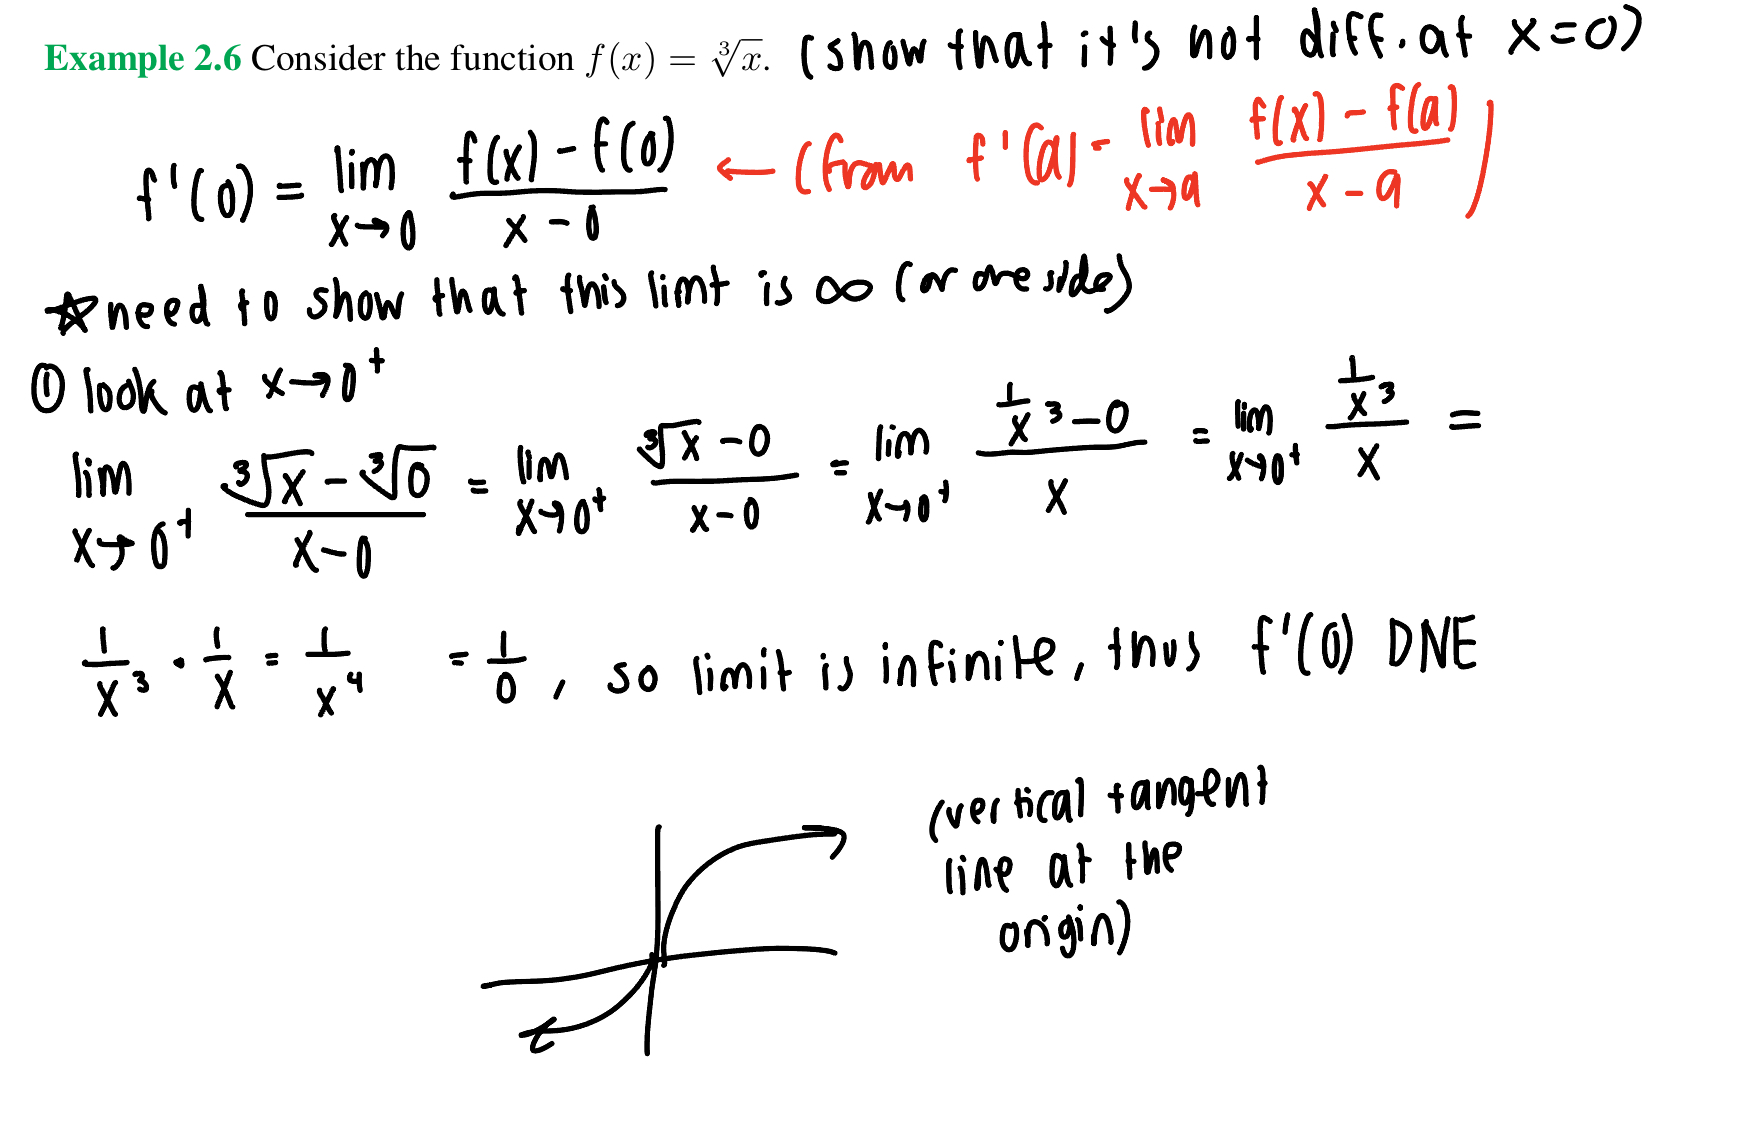 Example 2.6 Consider the function f(x) = ∛x. (show that it's not diff. at x=0)
f'(0) = lim x→0 (f(x) - f(0))/(x - 0) ← (from f'(a) = lim x→a (f(x) - f(a))/(x - a))
☆ need to show that this limt is ∞ (or one side)
① look at x→0⁺
lim x→0⁺ (∛x - ∛0)/(x-0) = lim x→0⁺ (∛x - 0)/(x-0) = lim x→0⁺ (1/x³ - 0)/x = lim x→0⁺ (1/x³)/x =
1/x³ · 1/x = 1/x⁴ = 1/0, so limit is infinite, thus f'(0) DNE
(vertical tangent
line at the
origin)